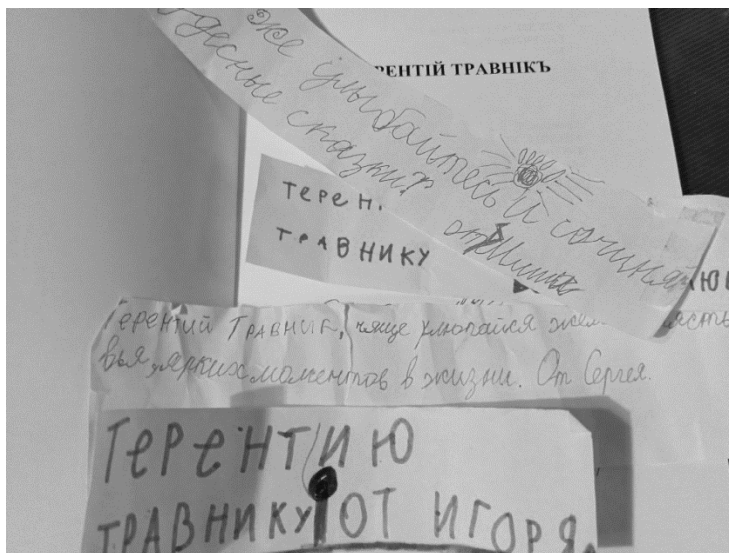 РЕНТІЙ ТРАВНІКЪ
же улыбайтесь и сочиняй
десные сказки
от
терен.
травнику
Терентий Травник, чаще улыбайся
вья, ярких моментов в жизни. От Сергея.
Терентию
травнику от Игоря.